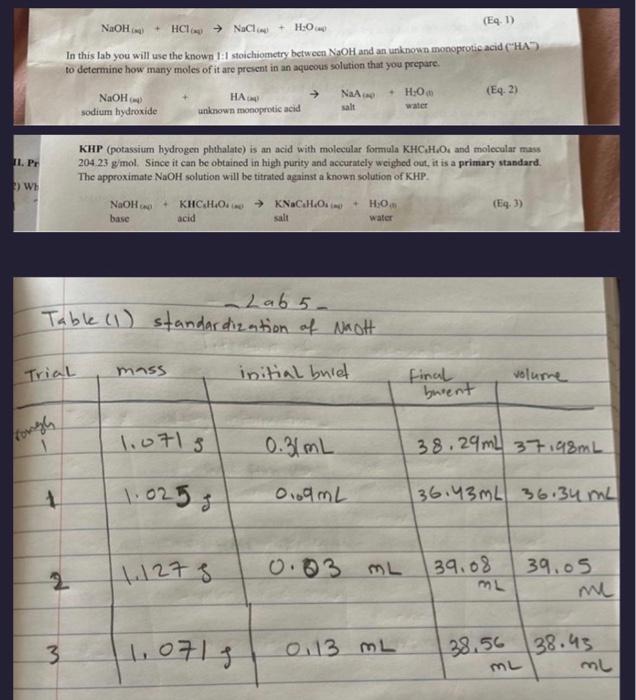 NaOH (aq) + HCl (aq) → NaCl (aq) + H₂O (aq) (Eq. 1)
In this lab you will use the known 1:1 stoichiometry between NaOH and an unknown monoprotic acid ("HA")
to determine how many moles of it are present in an aqueous solution that you prepare.
NaOH (aq) + HA (aq) → NaA (aq) + H₂O (l) (Eq. 2)
sodium hydroxide unknown monoprotic acid salt water
KHP (potassium hydrogen phthalate) is an acid with molecular formula KHC₈H₄O₄ and molecular mass
II. Pr 204.23 g/mol. Since it can be obtained in high purity and accurately weighed out, it is a primary standard.
The approximate NaOH solution will be titrated against a known solution of KHP.
) Wh
NaOH (aq) + KHC₈H₄O₄ (aq) → KNaC₈H₄O₄ (aq) + H₂O (l) (Eq. 3)
base acid salt water
- Lab 5 -
Table (1) standardization of NaOH
Trial mass initial buret Final volume
burent
rough
1 1.071 g 0.31 mL 38.29 mL 37.98 mL
1 1.025 g 0.09 mL 36.43 mL 36.34 mL
2 1.127 g 0.03 mL 39.08 39.05
mL mL
3 1.071 g 0.13 mL 38.56 38.43
mL mL